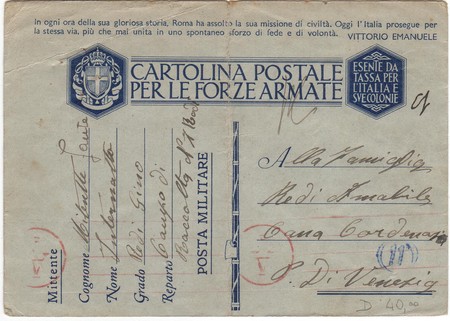 In ogni ora della sua gloriosa storia, Roma ha assolto la sua missione di civiltà. Oggi l'Italia prosegue per
la stessa via, più che mai unita in uno spontaneo sforzo di fede e di volontà. VITTORIO EMANUELE
CARTOLINA POSTALE
PER LE FORZE ARMATE
ESENTE DA
TASSA PER
L'ITALIA E
SVE COLONIE
Mittente
Cognome Mitente
Nome Internato
Grado Redi Gino
Reparto Campo di
Raccolta N 1
POSTA MILITARE
Alla Famiglia
Redi Amabile
Cana
P. Di Venezia
D 40,00